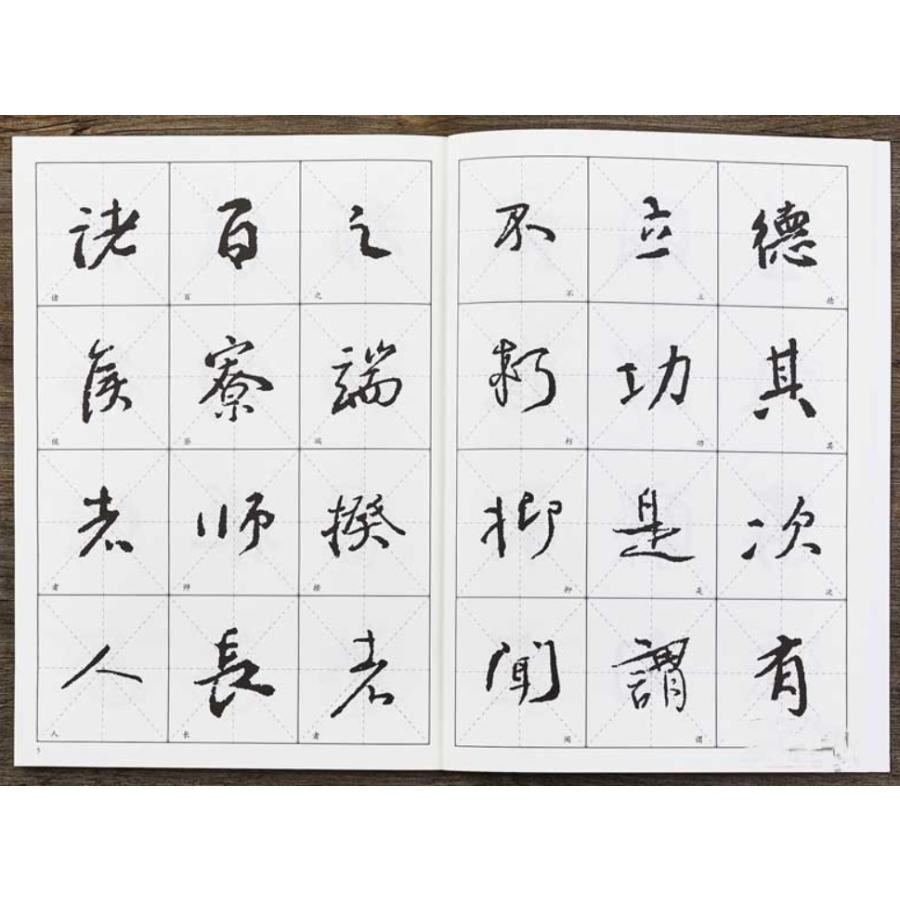 德其次有
立功是謂
不朽抑聞
之端揆者
百寮師長
諸侯者人
德 其 次
立 功 是 谓
不 朽 抑 闻
之 端 揆 者
百 寮 师 长
诸 侯 者 人
5